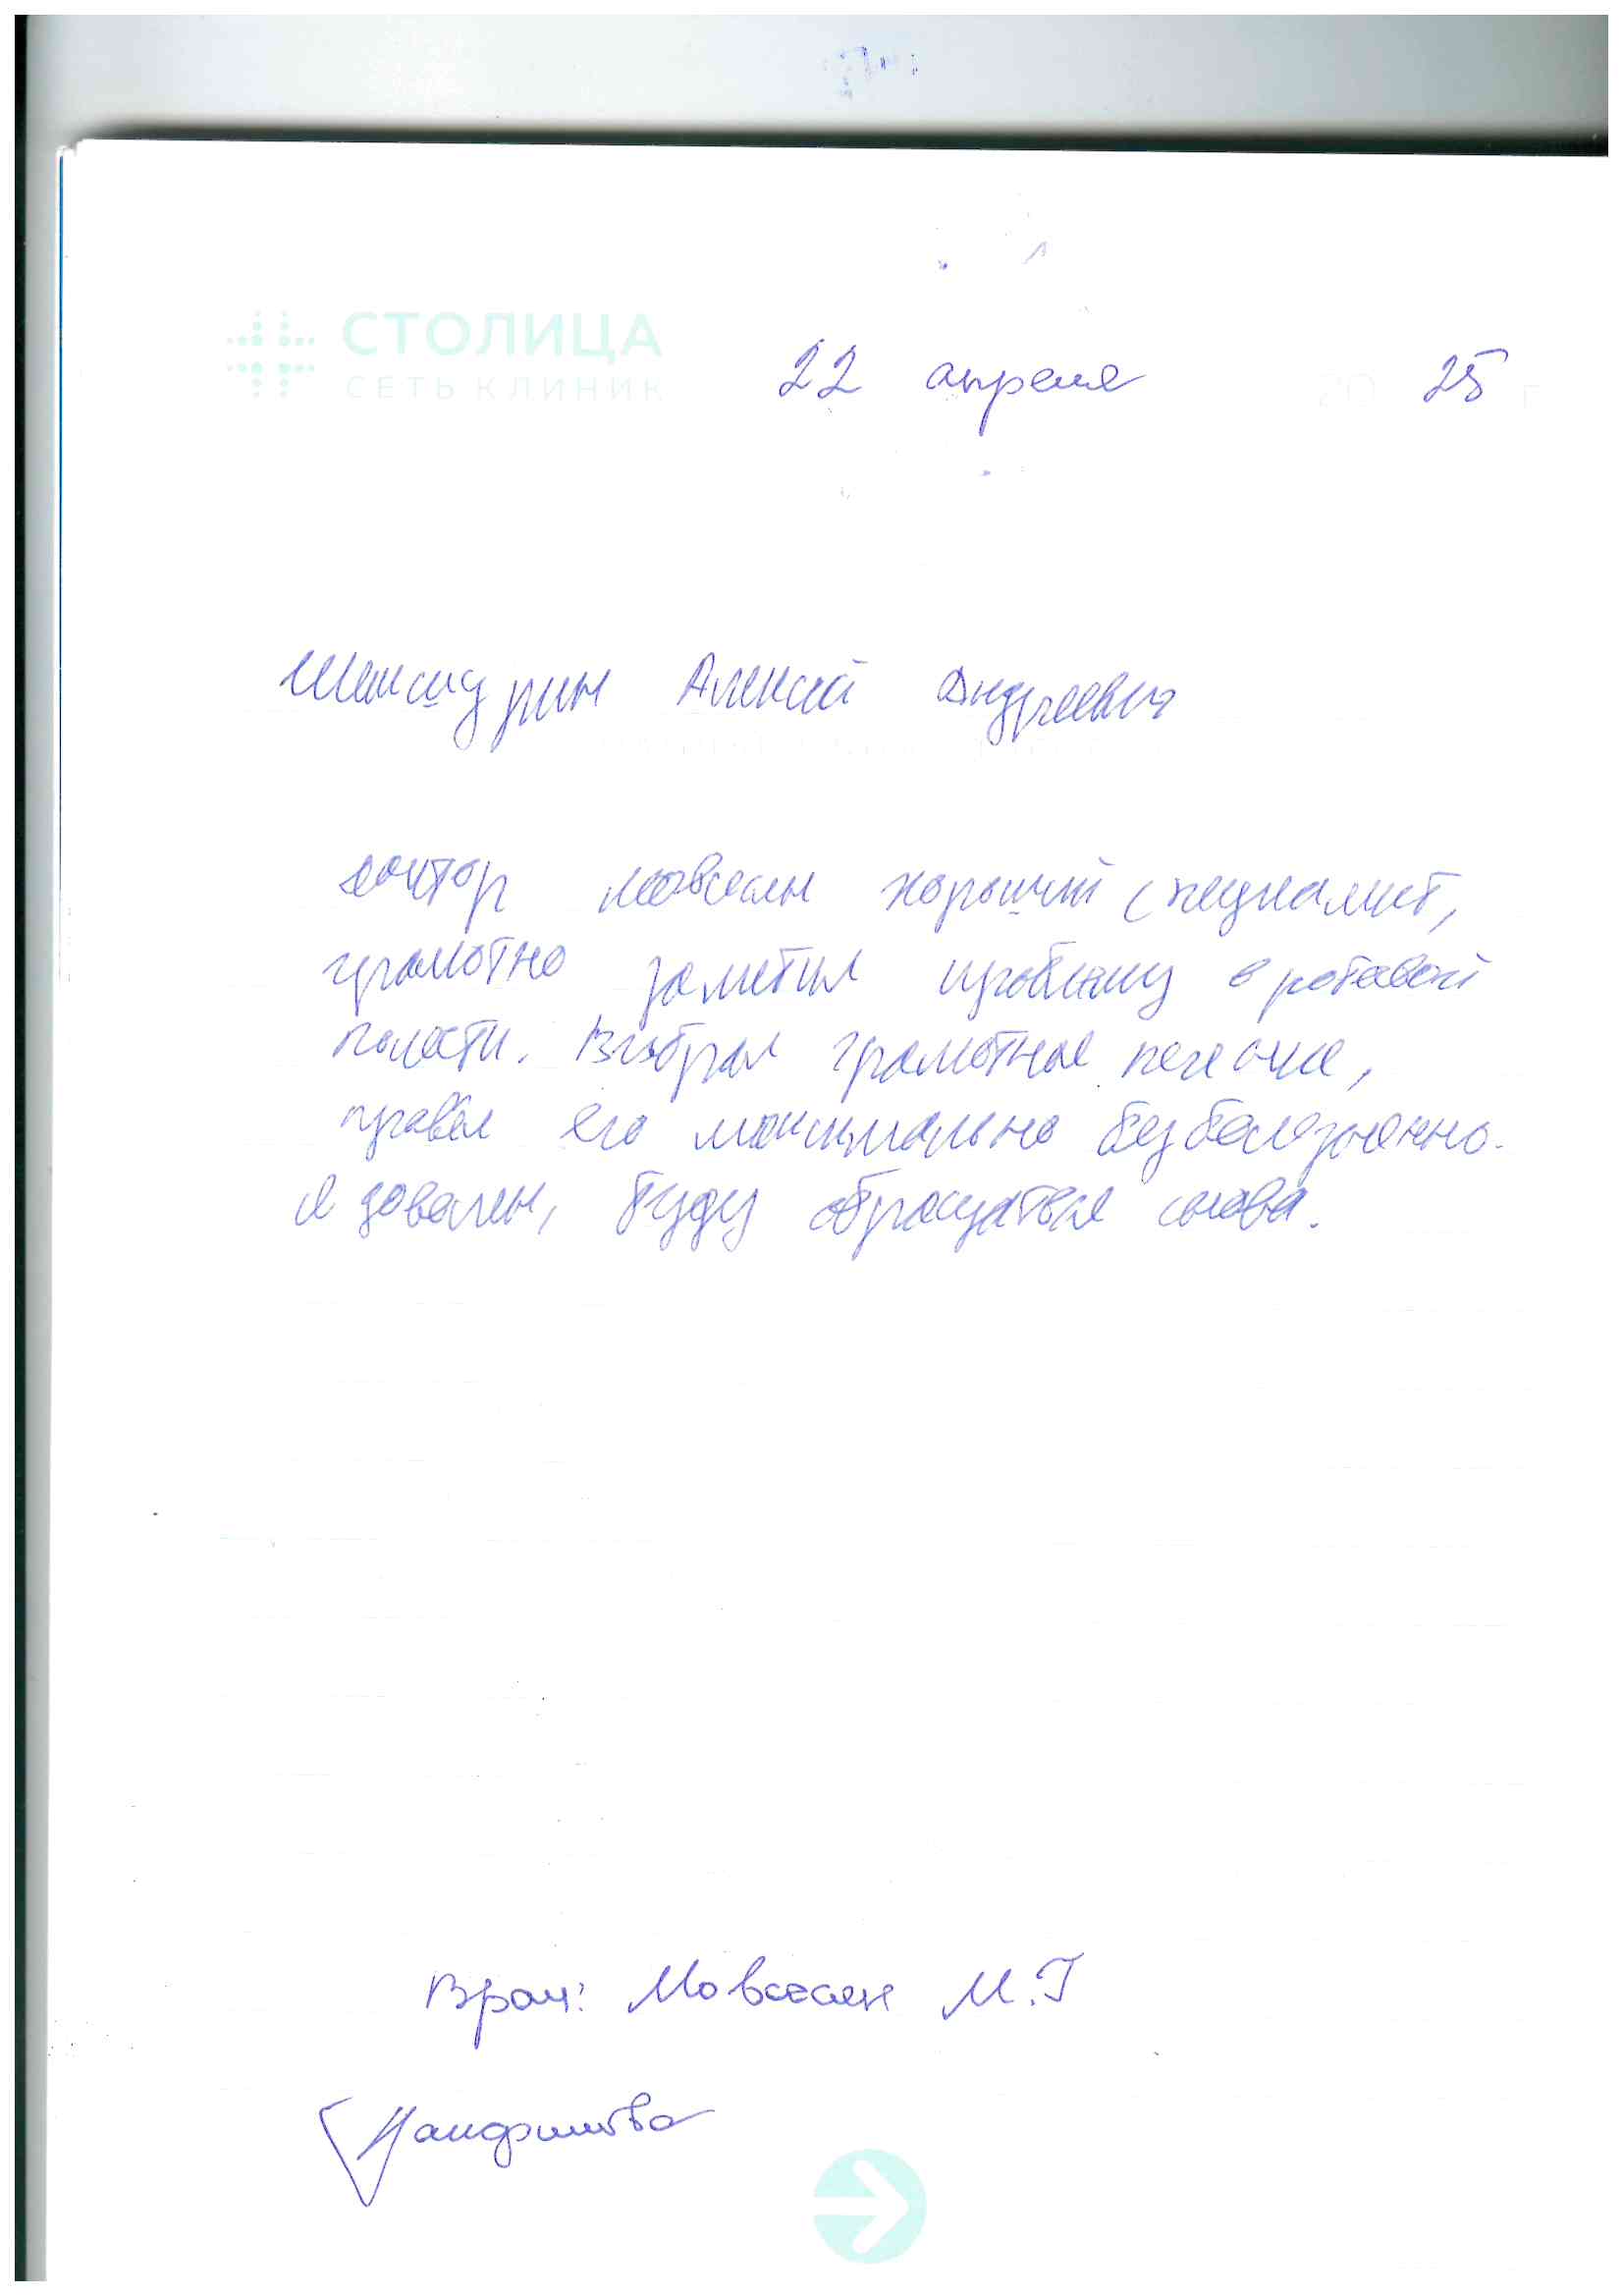 СТОЛИЦА
СЕТЬ КЛИНИК
22 апреля 2025 г.
Шакшурин Алексей Андреевич
Доктор Мовсесян хороший специалист,
грамотно заметил проблему в ротовой
полости. Выбрал грамотное лечение,
провёл его максимально безболезненно.
Я доволен, буду обращаться снова.
Врач: Мовсесян М.Г